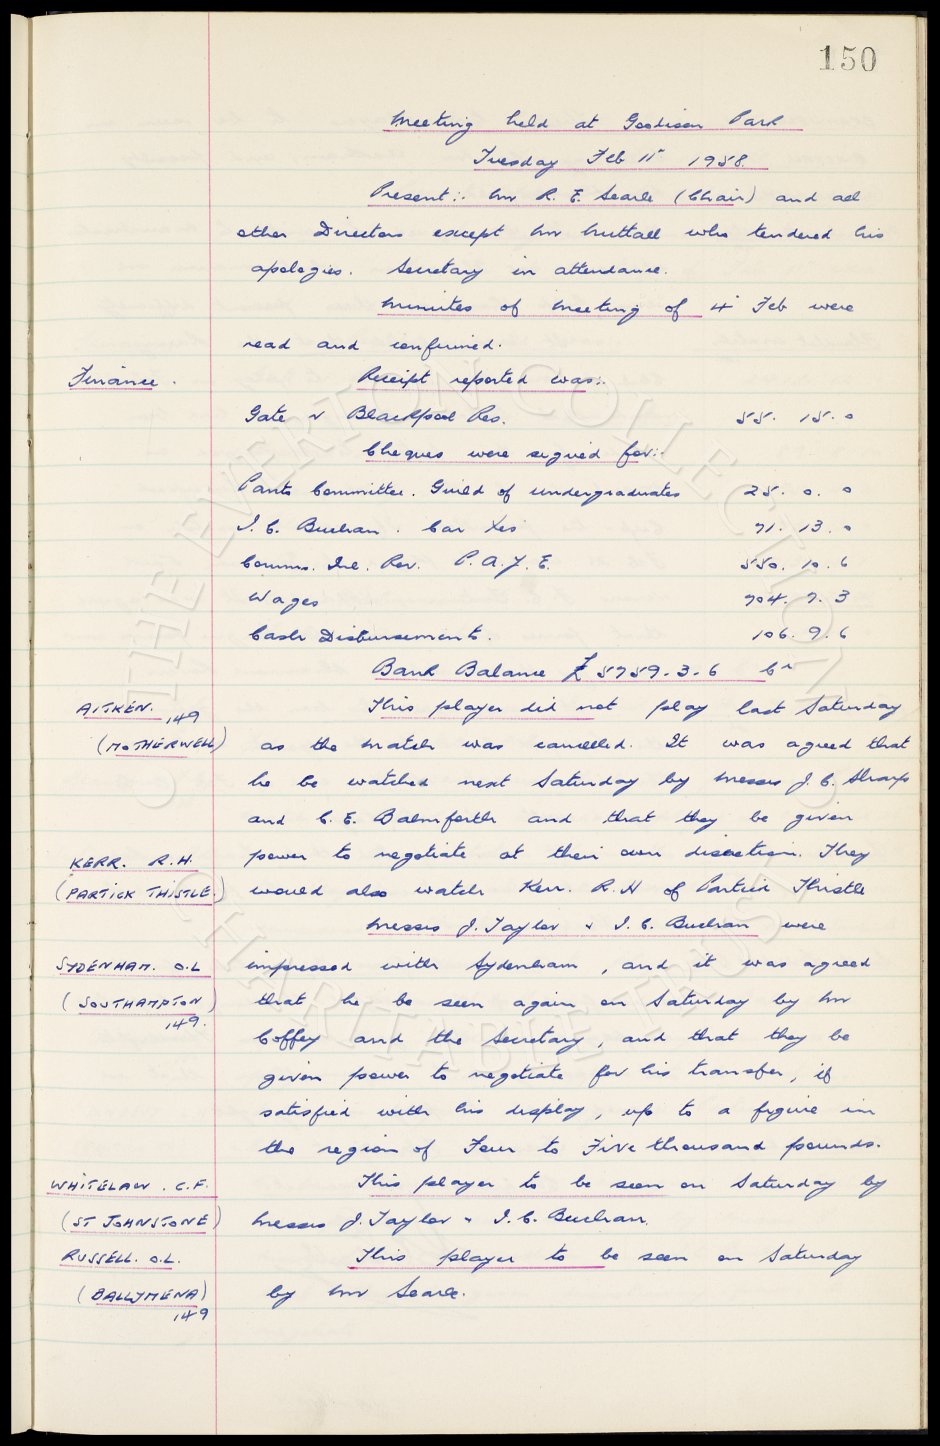 150
Meeting held at Goodison Park
Tuesday Feb 11th 1958.
Present:- Mr R. E. Searle (Chair) and all
other Directors except Mr Nuttall who tendered his
apologies. Secretary in attendance.
Minutes of Meeting of 4th Feb were
read and confirmed.
Finance. Receipt reported was:-
Gate v Blackpool Res. 55. 15. 0
Cheques were signed for:-
Panto Committee. Guild of undergraduates 25. 0. 0
I. C. Buchan. Car Exs 71. 13. 0
Comms. Inl. Rev. P.A.Y.E. 550. 10. 6
Wages 704. 7. 3
Cash Disbursements. 106. 9. 6
Bank Balance £5759. 3. 6 Cr
AITKEN. 149 This player did not play last Saturday
(MOTHERWELL) as the match was cancelled. It was agreed that
he be watched next Saturday by Messrs J. C. Sharp
and C. E. Balmforth and that they be given
KERR. R.H. power to negotiate at their own discretion. They
(PARTICK THISTLE.) would also watch Kerr. R. H of Partick Thistle
Messrs J. Taylor & I. C. Buchan were
SYDENHAM. O.L impressed with Sydenham, and it was agreed
(SOUTHAMPTON) that he be seen again on Saturday by Mr
149. Coffey and the Secretary, and that they be
given power to negotiate for his transfer, if
satisfied with his display, up to a figure in
the region of Four to Five thousand pounds.
WHITELAW. C.F. This player to be seen on Saturday by
(ST JOHNSTONE) Messrs J. Taylor & I. C. Buchan.
RUSSELL. O.L. This player to be seen on Saturday
(BALLYMENA) by Mr Searle.
149
© THE EVERTON COLLECTION
CHARITABLE TRUST